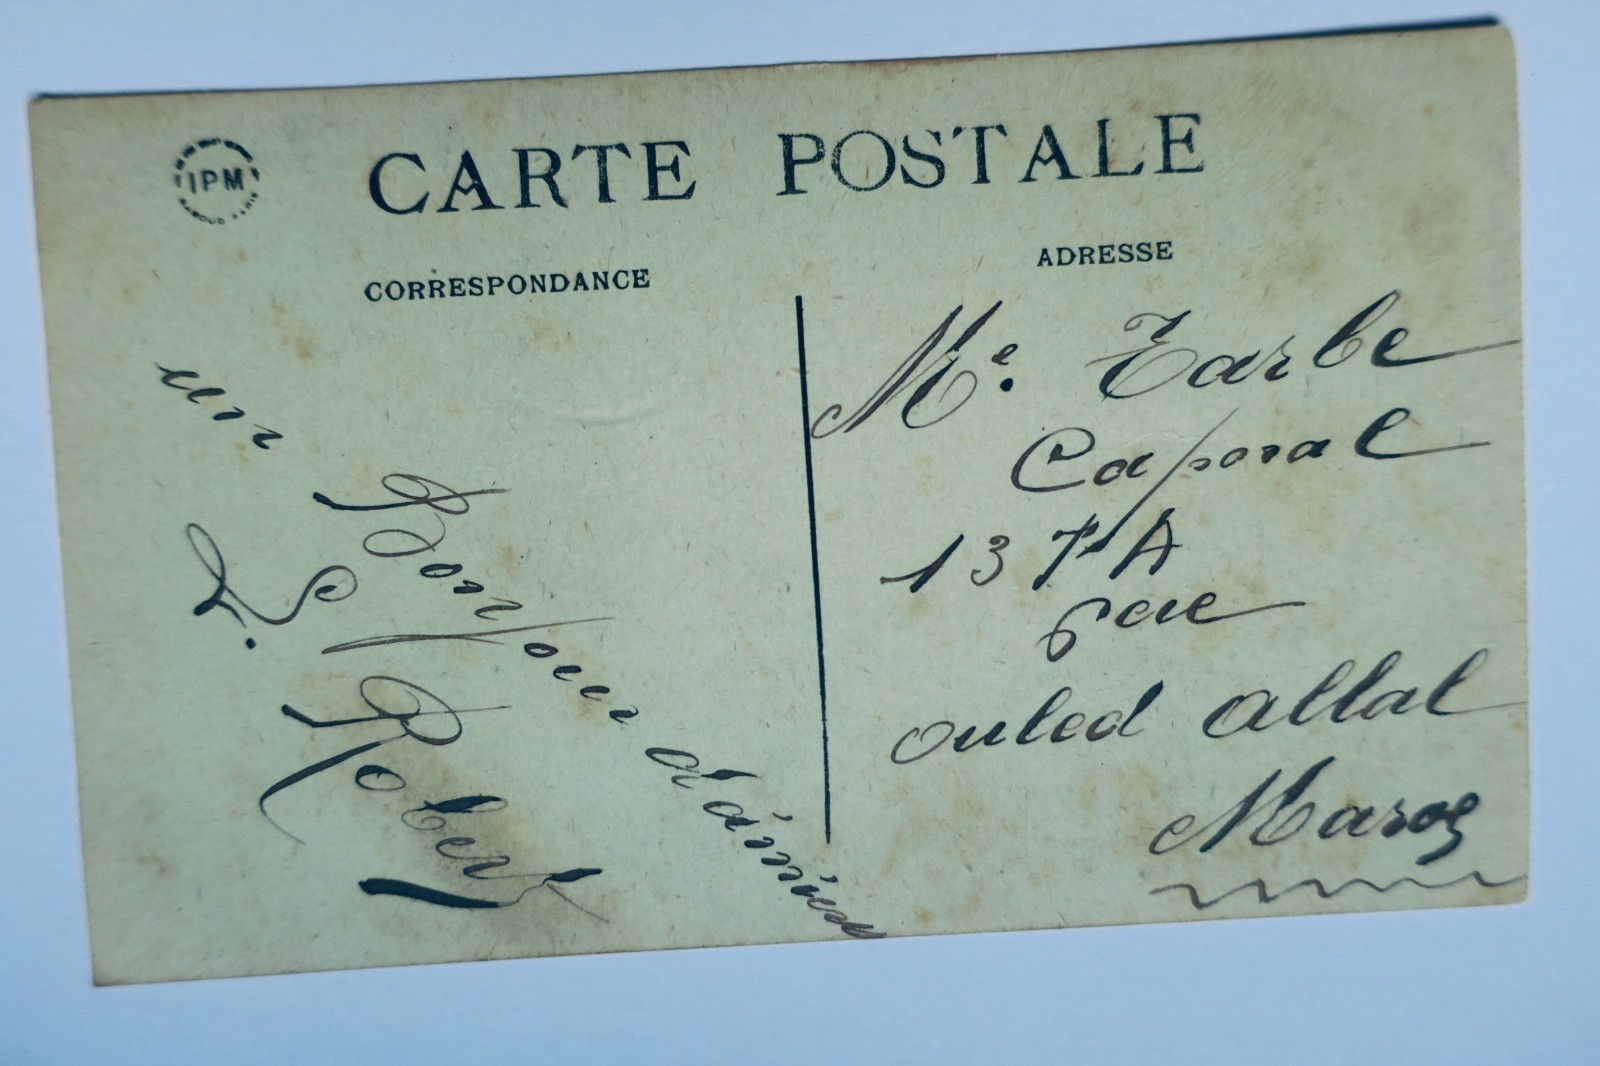 IPM
CARTE POSTALE
CORRESPONDANCE
ADRESSE
un Bonjour d'amitié
L. Robert
Me. Tarbe
Caporal
137 A
par
ouled allal
Maroc